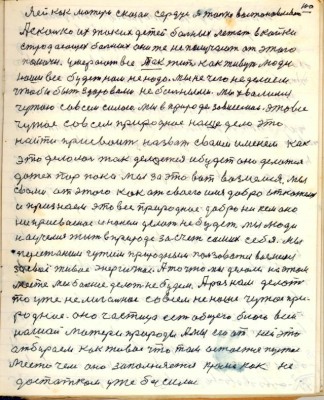 100
Ей как матери сказал сердце я только востоновляет
А сколко их таких детей болных лежат в койки
страдающих болных они же не получают от этого
помочи. умерают все так жит как живут люди
наши все будет нам не надо. мы не чего не думаем
чтобы быт здоровыми не болными. мы хвалимся
чужою совсем силою. мы в природе зависемся. Это все
чужое совсем природное наше дело это
найти присвоит назват своим именем как
это делалос так делается и будет оно делатся
до тех пор пока мы за это вот возмемся. мы
своим от этого как от своего имя добро откажемся
и признаем это все природное добро ни кем ако
не присвоеное и нечем делат не будет. мы люди
научемся жит в природе за счет самих себя. мы
перестаним чужим природным ползоватся
живой энергией. А то что мы делали на этом
месте мы болше делат не будем. А раз нам делат
то уже не мы само совсем не наше чужое при-
родное. оно частица ест общего
нашей матери природы. А мы его от ней это
отбираем как живое что там остается пустое
место чем оно заполняется кроме как не
достатком уже б и сили